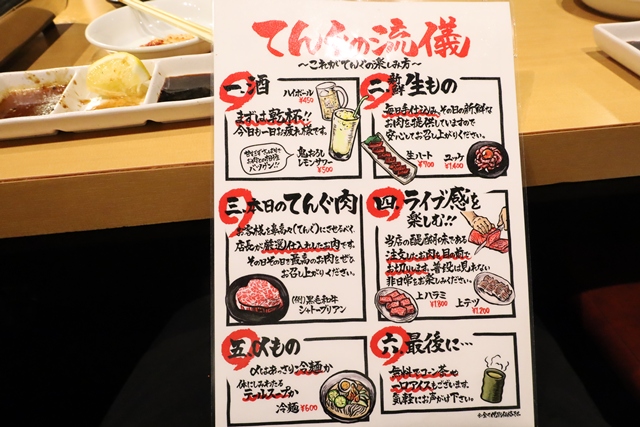 てんぐの流儀
～これがてんぐの楽しみ方～
一.酒
ハイボール
¥450
まずは乾杯!!
今日も一日お疲れ様です。
お肉との相性
バツグン!!
鬼おろし
レモンサワー
¥500
二.新鮮生もの
毎日手仕込み、その日の新鮮な
お肉を提供していますので
安心してお召し上がりください。
生ハート
¥900
ユッケ
¥1,400
三.本日のてんぐ肉
お客様を鼻高々(てんぐ)にさせるべく、
店長が厳選し仕入れたお肉です。
その日その日で最高のお肉をぜひ
お召し上がりください。
(例)黒毛和牛
シャトーブリアン
四.ライブ感を
楽しむ!!
当店の醍醐味である
注文したお肉を目の前で
お切りします。普段は見れない
非日常をお楽しみください。
上ハラミ
¥1,800
上テツ
¥1,200
五.〆もの
〆はあっさり冷麺か
体にしみわたる
テールスープか
冷麺 ¥600
六.最後に…
無料でコーン茶や
一口アイスもございます。
気軽にお声がけ下さい。